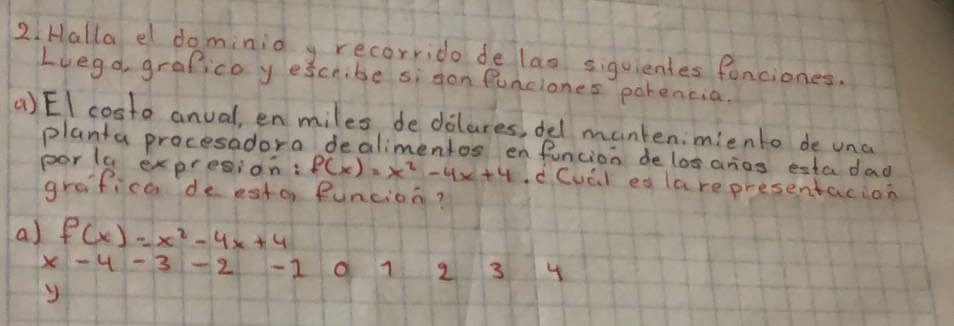 2. Halla el dominio y recorrido de las siguientes funciones.
Luego, grafico y escribe si son funciones potencia.
a) El costo anual, en miles de dólares, del mantenimiento de una
planta procesadora de alimentos en función de los años esta dad
por la expresión: f(x) = x² - 4x + 4. ¿Cuál es la representación
gráfica de esta función?
a) f(x) = x² - 4x + 4
x -4 -3 -2 -1 0 1 2 3 4
y